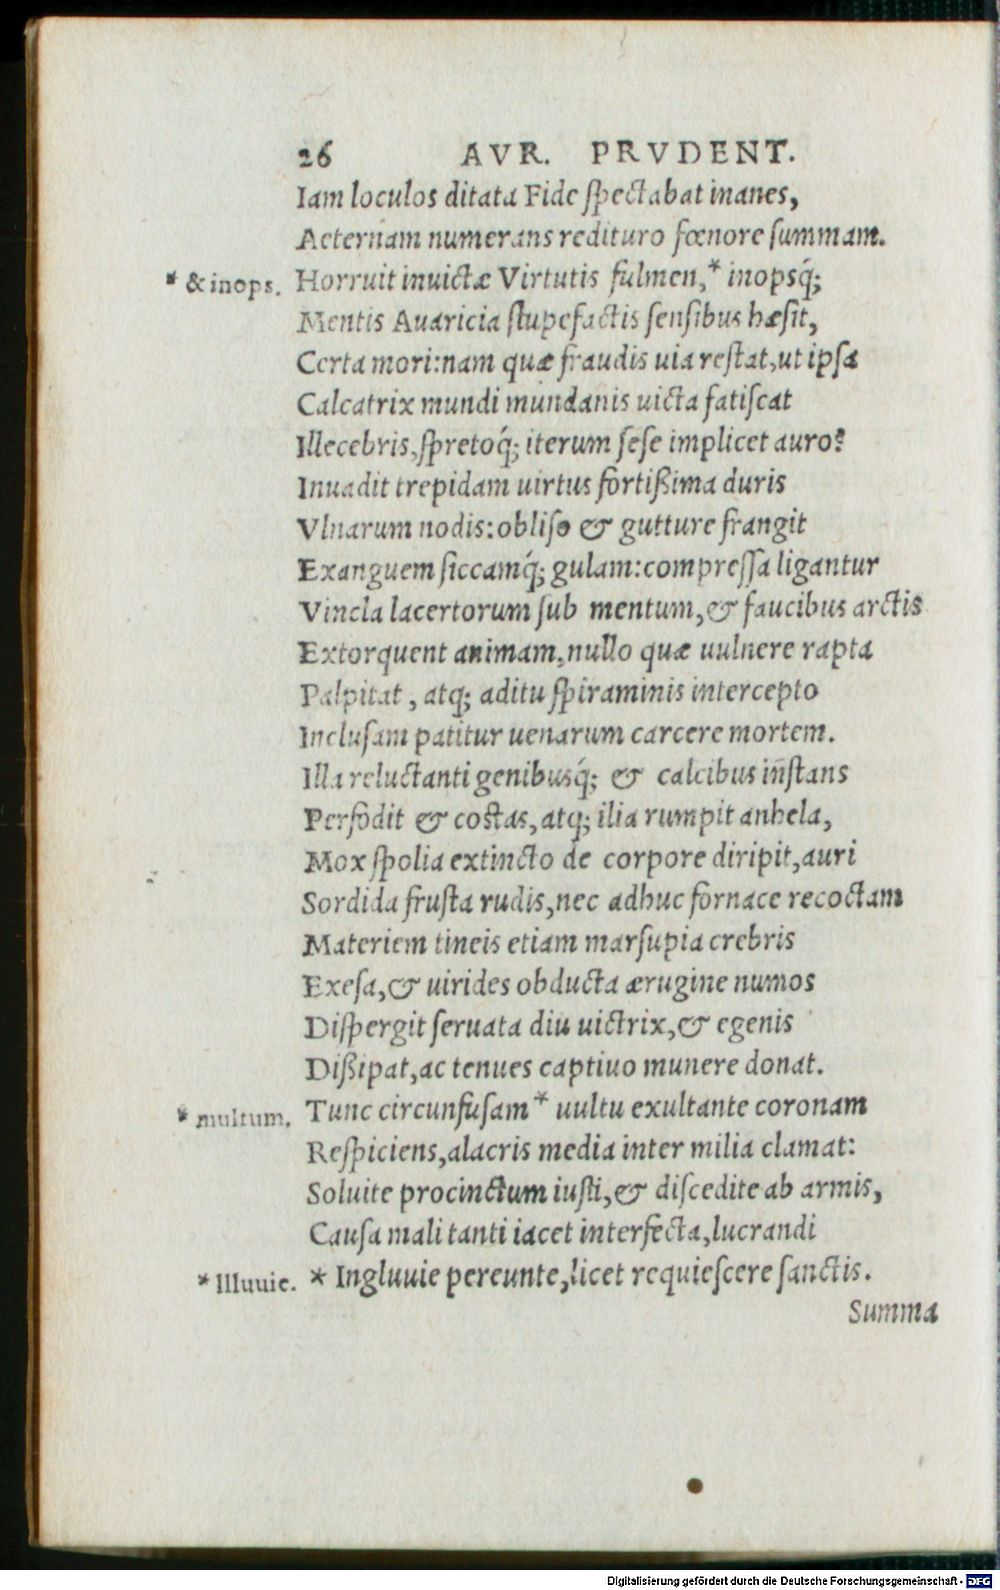 26 AVR. PRVDENT.
Iam loculos ditata Fide spectabat inanes,
Aeternam numerans redituro fœnore summam.
* & inops. Horruit inuictæ Virtutis fulmen,* inopsq́;
Mentis Auaricia stupefactis sensibus hæsit,
Certa mori:nam quæ fraudis uia restat,ut ipsa
Calcatrix mundi mundanis uicta fatiscat
Illecebris,spretoq́; iterum sese implicet auro?
Inuadit trepidam uirtus fortißima duris
Vlnarum nodis:obliso & gutture frangit
Exanguem siccamq́; gulam:compressa ligantur
Vincla lacertorum sub mentum,& faucibus arctis
Extorquent animam,nullo quæ uulnere rapta
Palpitat, atq; aditu spiraminis intercepto
Inclusam patitur uenarum carcere mortem.
Illa reluctanti genibusq́; & calcibus instans
Perfodit & costas,atq; ilia rumpit anhela,
Mox spolia extincto de corpore diripit,auri
Sordida frusta rudis,nec adhuc fornace recoctam
Materiem tineis etiam marsupia crebris
Exesa,& uirides obducta ærugine numos
Dispergit seruata diu uictrix,& egenis
Dißipat,ac tenues captiuo munere donat.
* multum. Tunc circunfusam* uultu exultante coronam
Respiciens,alacris media inter milia clamat:
Soluite procinctum iusti,& discedite ab armis,
Causa mali tanti iacet interfecta,lucrandi
* Illuuie. * Ingluuie pereunte,licet requiescere sanctis.
Summa
Digitalisierung gefördert durch die Deutsche Forschungsgemeinschaft - DFG